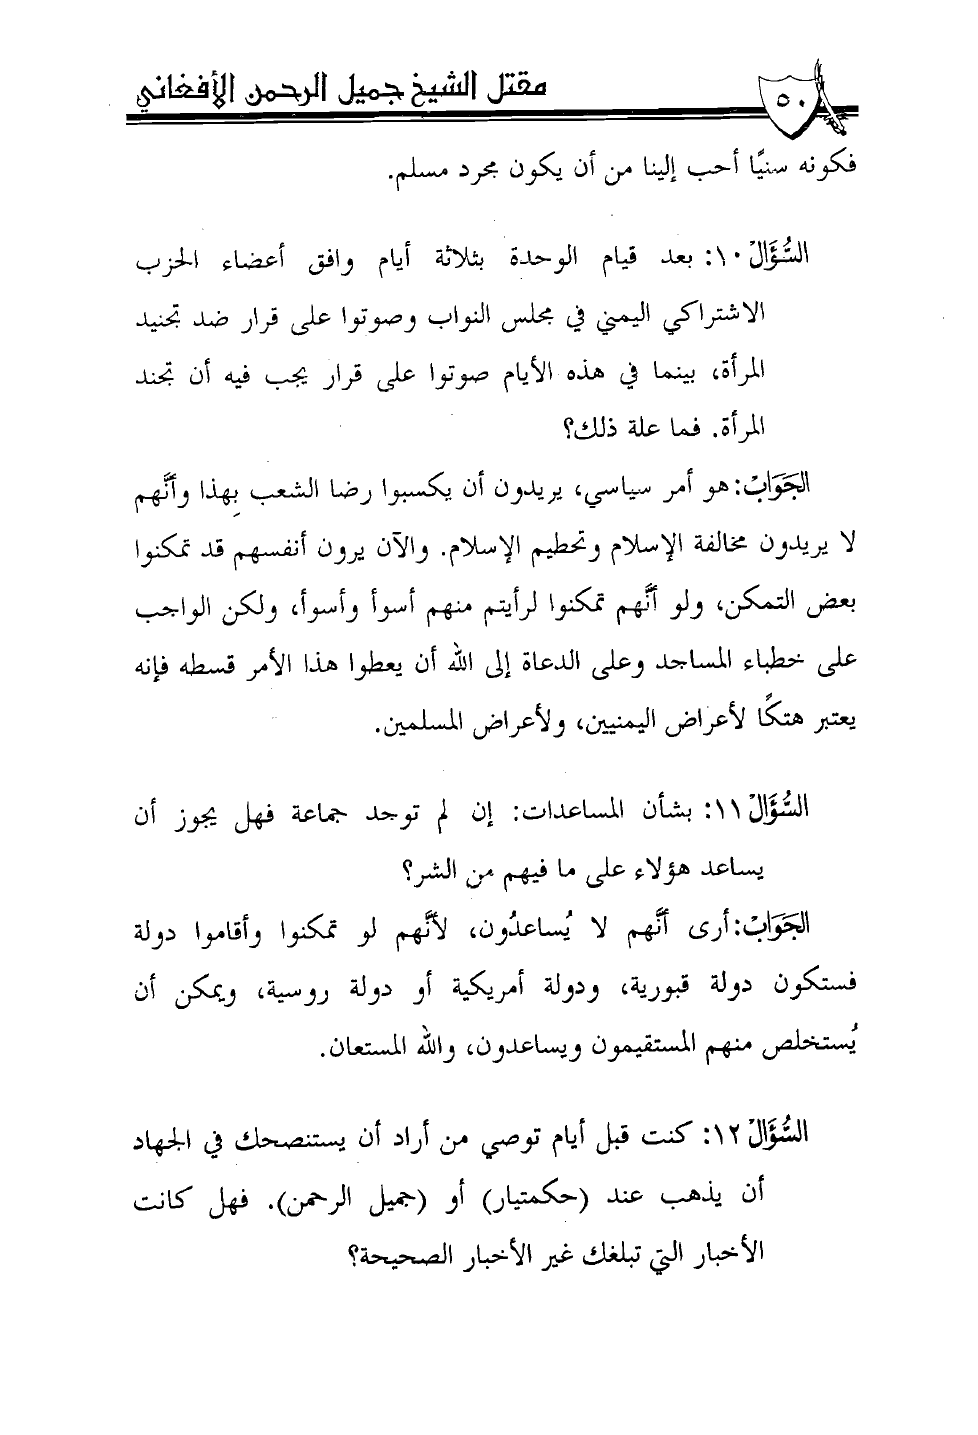 مقتل الشيخ جميل الرحمن الأفغاني
٥٠
فكونه سنيًّا أحب إلينا من أن يكون مجرد مسلم.
السُّؤَالْ ١٠: بعد قيام الوحدة بثلاثة أيام وافق أعضاء الحزب
الاشتراكي اليمني في مجلس النواب وصوتوا على قرار ضد تجنيد
المرأة، بينما في هذه الأيام صوتوا على قرار يجب فيه أن تجند
المرأة. فما علة ذلك؟
الجَوَابْ: هو أمر سياسي، يريدون أن يكسبوا رضا الشعب بِهذا وأنَّهم
لا يريدون مخالفة الإسلام وتحطيم الإسلام. والآن يرون أنفسهم قد تمكنوا
بعض التمكن، ولو أنَّهم تمكنوا لرأيتم منهم أسوأ وأسوأ، ولكن الواجب
على خطباء المساجد وعلى الدعاة إلى الله أن يعطوا هذا الأمر قسطه فإنه
يعتبر هتكًا لأعراض اليمنيين، ولأعراض المسلمين.
السُّؤَالْ ١١: بشأن المساعدات: إن لم توجد جماعة فهل يجوز أن
يساعد هؤلاء على ما فيهم من الشر؟
الجَوَابْ: أرى أنَّهم لا يُساعدُون، لأنَّهم لو تمكنوا وأقاموا دولة
فستكون دولة قبورية، ودولة أمريكية أو دولة روسية، ويمكن أن
يُستخلص منهم المستقيمون ويساعدون، والله المستعان.
السُّؤَالْ ١٢: كنت قبل أيام توصي من أراد أن يستنصحك في الجهاد
أن يذهب عند (حكمتيار) أو (جميل الرحمن). فهل كانت
الأخبار التي تبلغك غير الأخبار الصحيحة؟